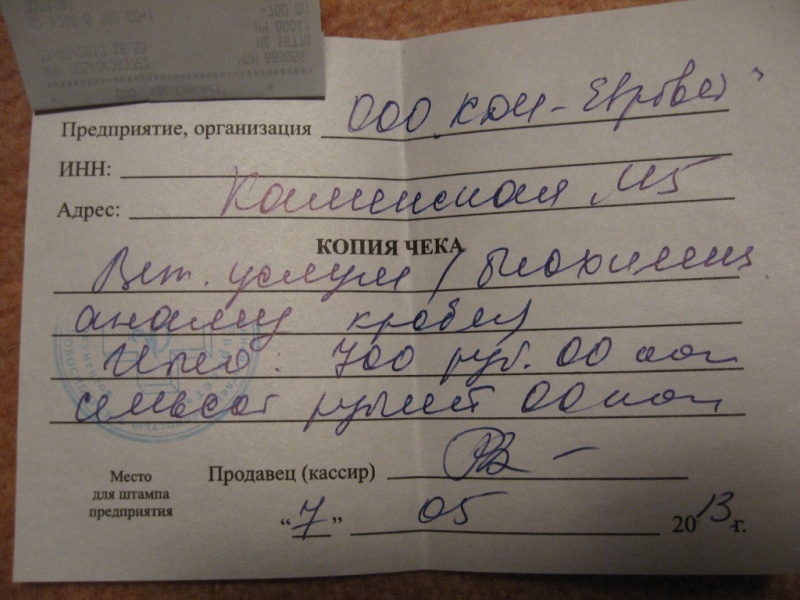 Предприятие, организация ООО "КДИ - Евровет"
ИНН:
Адрес: Каменская
КОПИЯ ЧЕКА
Вет. услуги / биохимич
анализ крови
Итого: 700 руб. 00 коп
семьсот рублей 00 коп
Место
для штампа
предприятия
Продавец (кассир)
"7" 05 2013 г.